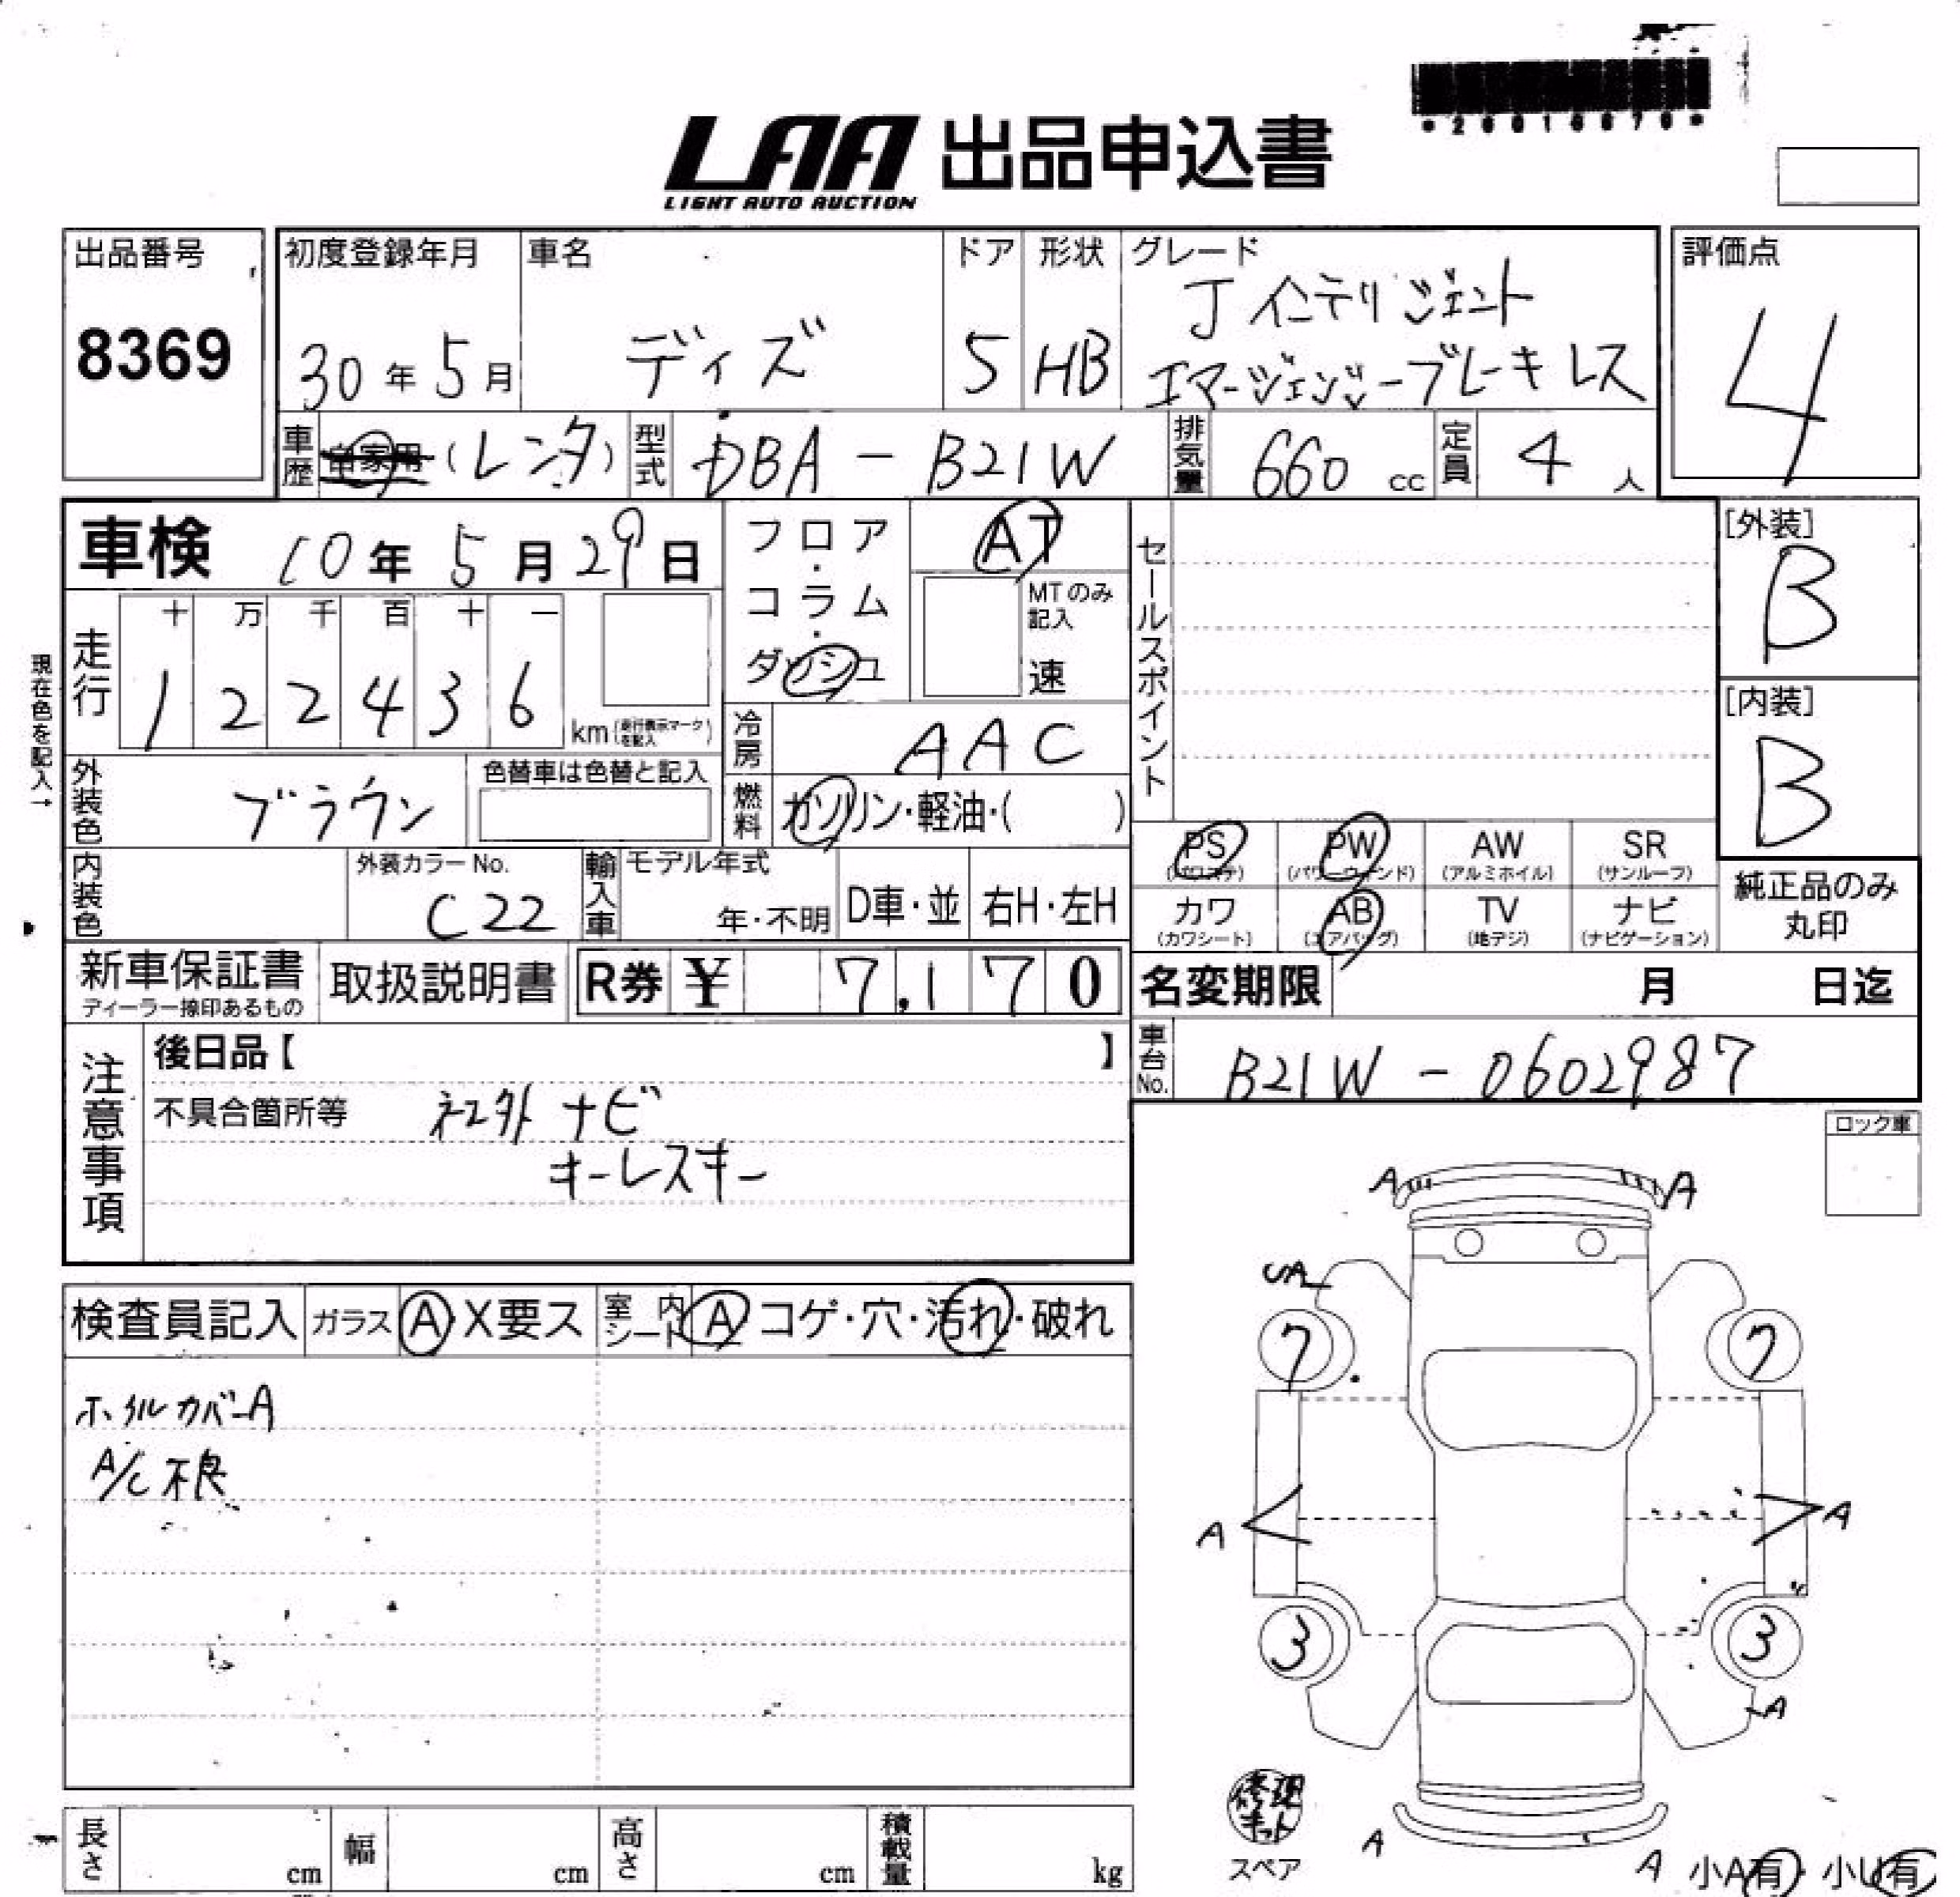 LAA 出品申込書
LIGHT AUTO AUCTION
出品番号
8369
初度登録年月
30年5月
車名
デイズ
ドア
5
形状
HB
グレード
J インテリジェント
エマージェンシーブレーキレス
評価点
4
車歴 自家用 (レンタ)
型式 DBA-B21W
排気量 660 cc
定員 4 人
車検 10年5月29日
フロア・コラム・ダッシュ
AT
MTのみ記入
速
セールスポイント
[外装]
B
[内装]
B
現在色を記入→
走行
十 万 千 百 十 一
1 2 2 4 3 6 km (走行表示マークを記入)
冷房 AAC
外装色 ブラウン
色替車は色替と記入
燃料 ガソリン・軽油・( )
内装色
外装カラーNo.
C22
輸入車
モデル年式
年・不明
D車・並
右H・左H
PS (パワステ)
PW (パワーウィンド)
AW (アルミホイル)
SR (サンルーフ)
カワ (カワシート)
AB (エアバッグ)
TV (地デジ)
ナビ (ナビゲーション)
純正品のみ丸印
新車保証書
ディーラー捺印あるもの
取扱説明書
R券 ¥ 7,170
名変期限 月 日迄
車台No. B21W-0602987
注意事項
後日品【 】
不具合箇所等 社外ナビ
キーレスキー
ロック車
検査員記入 ガラス A X要ス 室内シート A コゲ・穴・汚れ・破れ
ホイルカバーA
A/C不良
A A
7 7
A A
3 3
A
修理キット
スペア
A A
小A有・小U有
長さ cm 幅 cm 高さ cm 積載量 kg